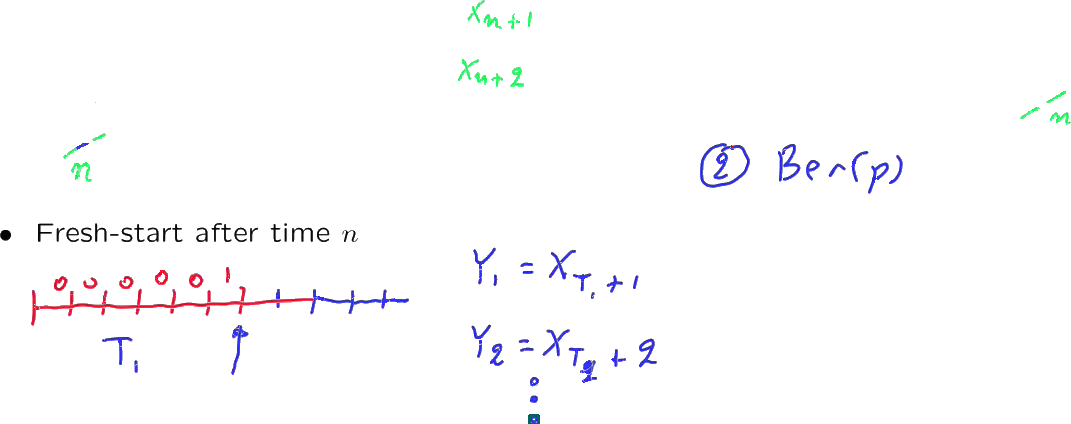 X_{n+1}
X_{n+2}
n
n
② Ber(p)
• Fresh-start after time n
0 0 0 0 0 1
Y_1 = X_{T_1+1}
T_1
Y_2 = X_{T_2+2}